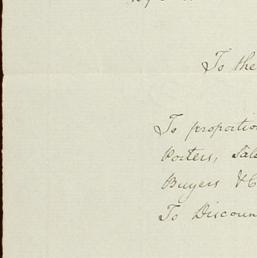 To the
To proportio
Porters, Sale
Buyers & C
To Discoun